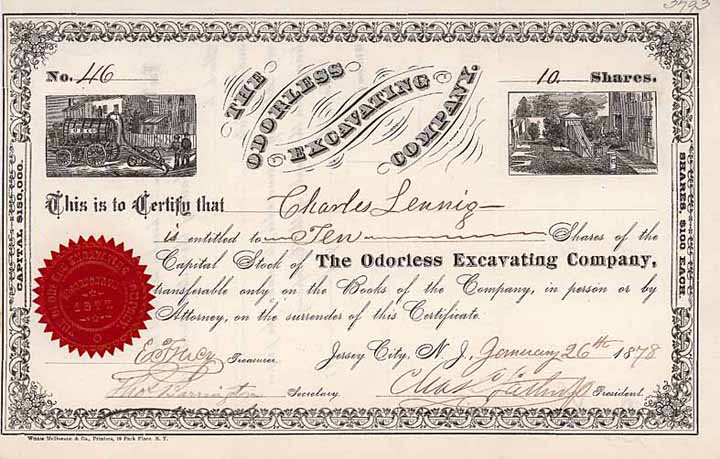 3723
No. 46
10 Shares.
THE
ODORLESS
EXCAVATING
COMPANY.
CAPITAL $150,000.
SHARES, $100 EACH.
This is to Certify that Charles Lennig
is entitled to Ten Shares of the
Capital Stock of The Odorless Excavating Company,
transferable only on the Books of the Company, in person or by
Attorney, on the surrender of this Certificate.
Treasurer. Jersey City, N. J. January 26th 1878
Secretary. President.
& Co., Printers, 18 Park Place N. Y.